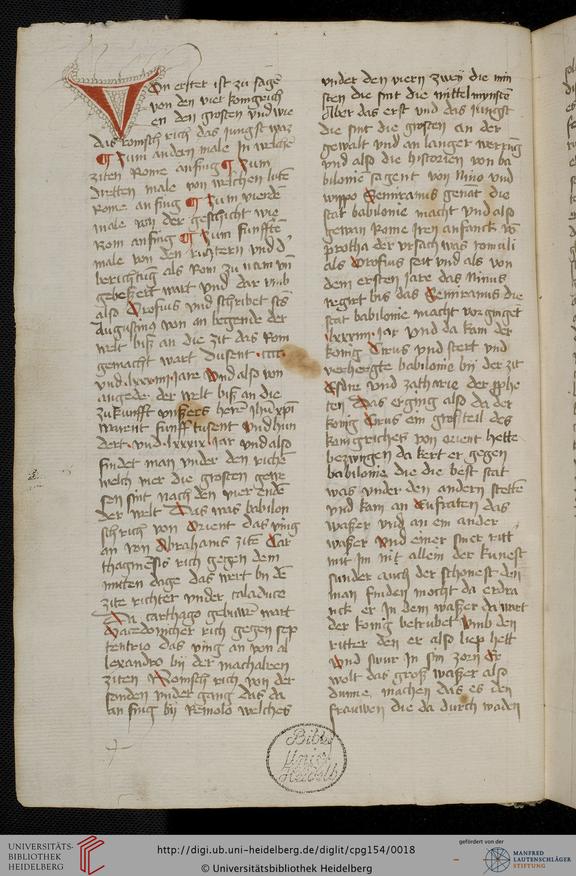 Von erst ist zu sage
von den viel konigrich
en den grosten vnd wie
das romsch rich das jungst waz
¶ Zum andern male In welche
ziten Rome anfing ¶ Zum
dritten male von welchen lute
Rome an fing ¶ Zum vierde
male von der geschicht wie
Rom anfing ¶ Zum funffte
male von den richtern vnd d
berichtug als Rom zu
gekert wart vnd dar vmb
also Orosius vnd schribet sts
Augustinus von an begende der
welt biß an die zit das Rom
gemacht wart dusent
vnd jare Vnd also von
angede der welt biß an die
zukunfft vnsers here ihu xpi
warent funff tusent vnd hun
dert vnd lxxxix jar vnd also
findet man vnder den riche
welch vier die grosten gewe
sen sint nach den vier ende
der welt Das was babilon
sch rich von Orient das ving
an von Abrahams zite Car
thaginesis rich gegen dem
mitten dage das wert by de
zite richter vnder
Da carthago gebuwe wart
Macedonischer rich gegen sep
tentrio das ving an von al
lexandro bij der machabeen
ziten Romsch rich von der
sonden vnder gang das da
an fing bij Remolo welches
vnder den viern zweij die min
sten die sint die mittelmynste
Aber das erst vnd das jungst
die sint die grosten an der
gewalt vnd an langer werung
vnd also die historien von ba
bilonie sagent von Nino vnd
Semiramis genat die
stat babilonie macht vnd also
gewan Rome iren anfanck vo
der vrsach was romuli
als Orosius seit vnd als von
dem ersten Jare das Ninus
regirt bis das Semiramis die
stat babilonie macht vorginget
lxxxiiij jar vnd da kam der
konig Cirus vnd stert vnd
verhergte babilonie bij der zit
Esdre vnd zacharie der pphe
ten Das erging also da der
konig Cirus ein groß teil des
kunigriches von orient hette
bezwingen da kert er gegen
babilonie die die best stat
was vnder den andern stette
vnd kam an Eufraten das
waßer vnd an ein ander
waßer Vnd einer siner ritt
mit im nit allein der kunest
sunder auch der schonest den
man finden mocht da erdra
nck er In dem waßer da wart
der konig betrubet vmb den
ritter den er also liep hett
Vnd swur in sin zorn Er
wolt das groß waßer also
dunne machen das es den
frauwen die da durch waden
Bibl.
Univ.
Heidelb.
UNIVERSITÄTS-
BIBLIOTHEK
HEIDELBERG
http://digi.ub.uni-heidelberg.de/diglit/cpg154/0018
© Universitätsbibliothek Heidelberg
gefördert von der
MANFRED
LAUTENSCHLÄGER
STIFTUNG